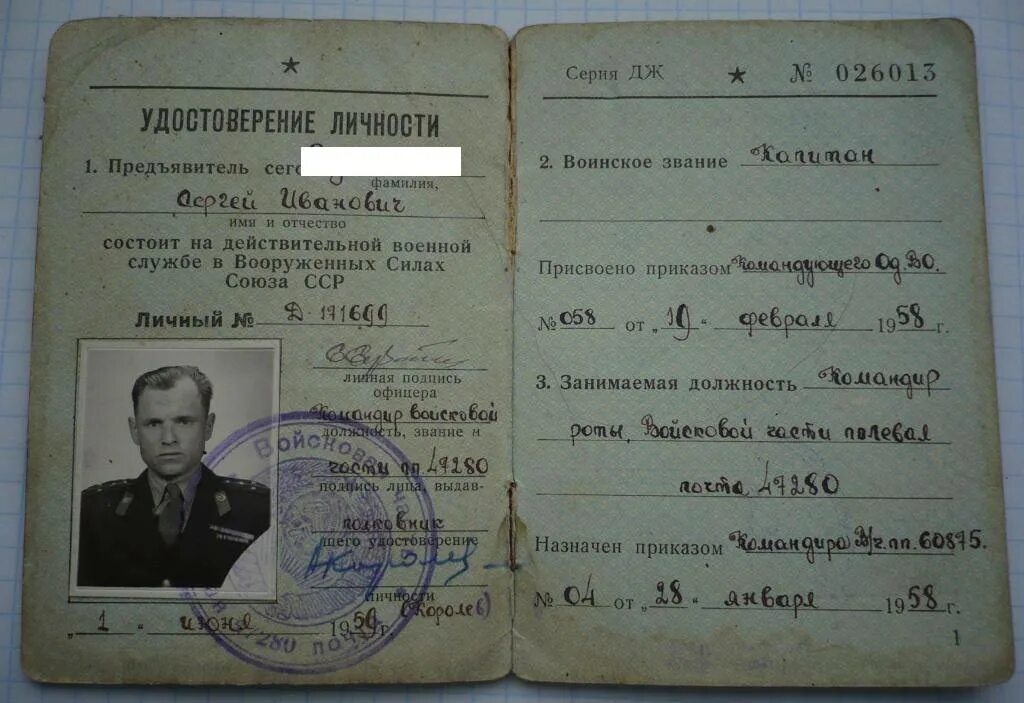 УДОСТОВЕРЕНИЕ ЛИЧНОСТИ
1. Предъявитель сего
фамилия,
Сергей Иванович
имя и отчество
состоит на действительной военной
службе в Вооруженных Силах
Союза ССР
Личный № Д-171699
личная подпись
офицера
Командир войсковой
должность, звание и
части пп. 47280
подпись лица, выдав-
полковник
шего удостоверение
личности
(Королев)
„1" июня 1959 г.
Войсковая
47280
Серия ДЖ № 026013
2. Воинское звание Капитан
Присвоено приказом Командующего Од.ВО.
№ 058 от „19" февраля 1958 г.
3. Занимаемая должность Командир
роты, Войсковой части полевая
почта 47280
Назначен приказом Командира В/ч.пп. 60875.
№ 04 от „28" января 1958 г.
1